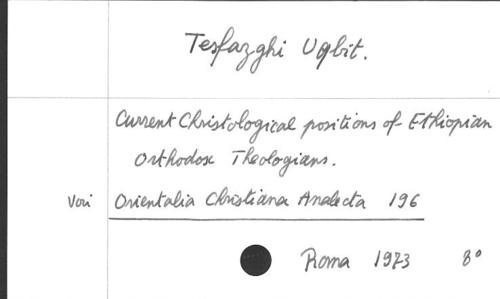 Tesfazghi Uqbit.
Current Christological positions of Ethiopian
Orthodox Theologians.
Voir Orientalia Christiana Analecta 196
Roma 1973 8°